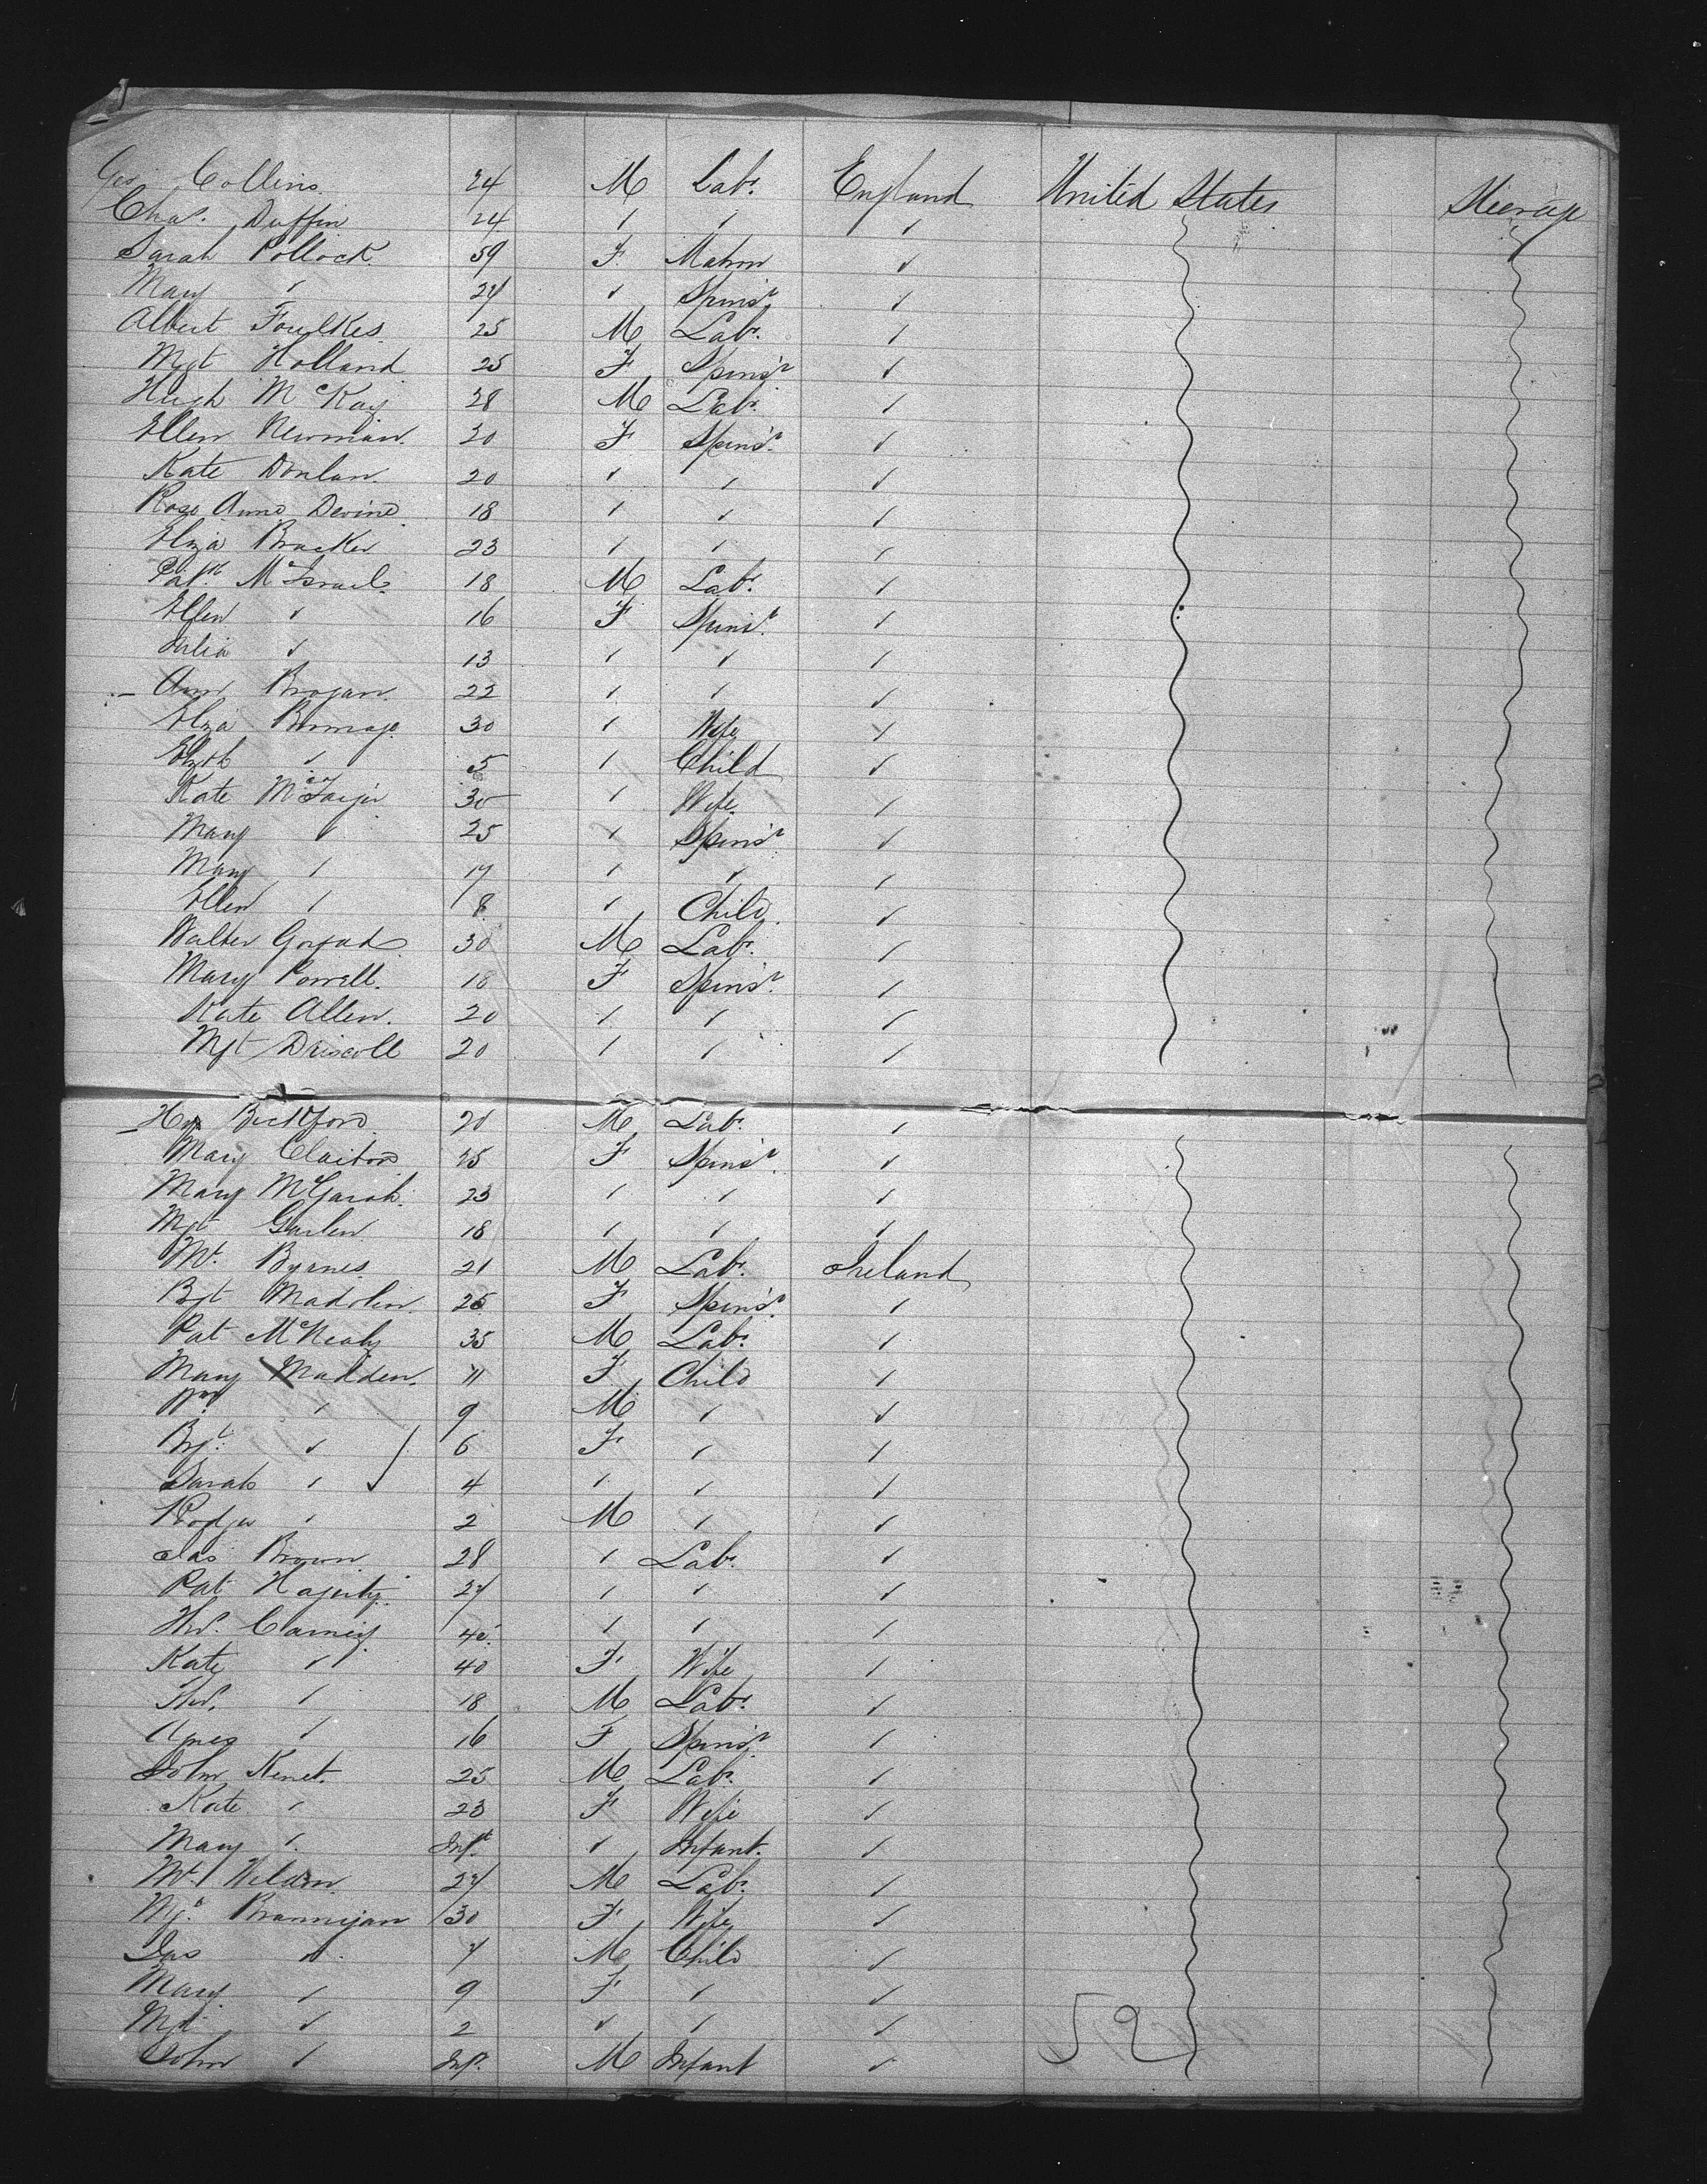 Geo Collins. 24 M Labr. England United States Steerage
Chas. Duffin 24 " " "
Sarah Pollock. 59 F. Matron "
Mary " 24 " Spinsr. "
Albert Foulkes. 25 M Labr. "
Mgt Holland 25 F Spinsr. "
Hugh McKay 28 M Labr. "
Ellen Newman. 20 F Spinsr. "
Kate Donlan. 20 " " "
Rose Anne Devine 18 " " "
Eliza Bracken 23 " " "
Patk. 18 M Labr. "
Ellen " 16 F Spinsr. "
Julia " 13 " " "
Ann Brogan. 22 " " "
Eliza 30 " Wife "
Elizth " 5 " Child "
Kate 30 " Wife "
Mary " 25 " Spinsr. "
Mary " 17 " " "
Ellen " 8 " Child. "
Walter 30 M Labr. "
Mary Powell. 18 F Spinsr. "
Kate Allen. 20 " " "
Mgt Driscoll 20 " " "
Hy Beckford. 20 M Labr. "
Mary 25 F Spinsr. "
Mary McGarah. 23 " " "
Mgt 18 " " "
Mt. Byrnes 21 M Labr. Ireland
Bgt 25 F Spinsr. "
Pat McNealy 35 M Labr. "
Mary Madden. 11 F Child "
Wm " 9 M " "
Bgt. " 6 F " "
Sarah " 4 " " "
Rodger " 2 M " "
Jas Brown 28 " Labr. "
Pat Hagerty. 27 " " "
Thos. Carney 40 " " "
Kate " 40 F Wife "
Thos. " 18 M Labr. "
Agnes " 16 F Spinsr. "
John Kenet. 25 M Labr. "
Kate " 23 F Wife "
Mary " Inft. " Infant. "
Mt. 27 M Labr. "
Mgt. Brannigan 30 F Wife "
Jas " 7 M Child "
Mary " 9 F " "
Mgt " 2 " " "
John " Inft. M Infant "
52